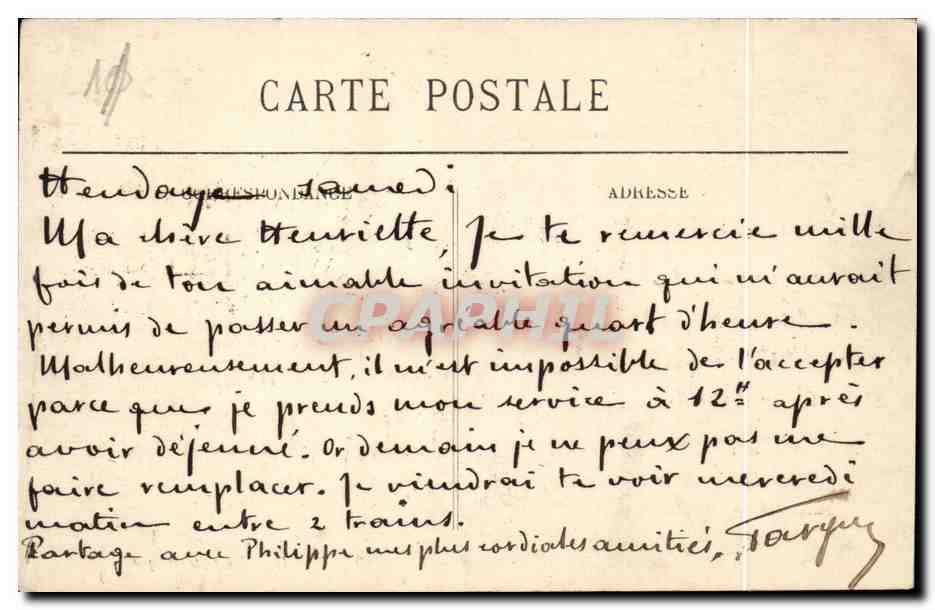 CARTE POSTALE
CORRESPONDANCE
ADRESSE
Hendaye samedi
Ma chère Henriette, Je te remercie mille
fois de ton aimable invitation qui m'aurait
permis de passer un agréable quart d'heure.
Malheureusement, il m'est impossible de l'accepter
parce que je prends mon service à 12H après
avoir déjeuné. Or demain je ne peux pas me
faire remplacer. Je viendrai te voir mercredi
matin entre 2 trains.
Partage avec Philippe mes plus cordiales amitiés.
CPAPHIL